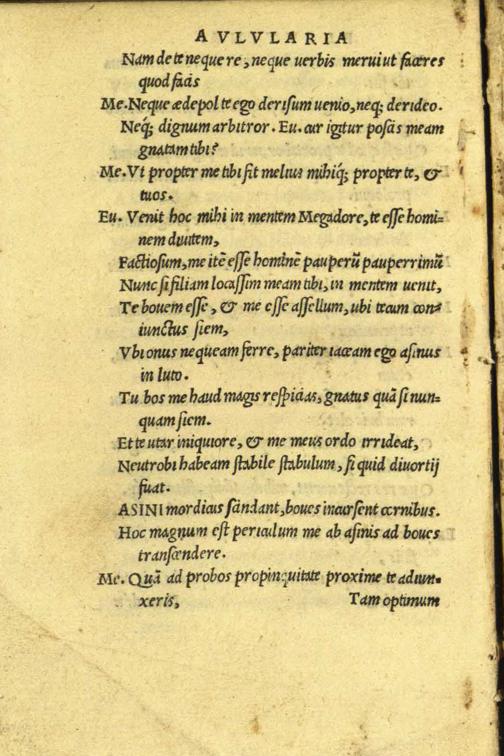 AVLVLARIA
Nam de te neque re, neque uerbis merui ut faceres
quod facis
Me. Neque ædepol te ego derisum uenio, neq; derideo.
Neq́; dignum arbitror. Eu. cur igitur poscis meam
gnatam tibi?
Me. Vt propter me tibi sit melius mihiq́; propter te, &
tuos.
Eu. Venit hoc mihi in mentem Megadore, te esse homi-
nem diuitem,
Factiosum, me itẽ esse hominẽ pauperũ pauperrimũ
Nunc si filiam locassim meam tibi, in mentem uenit,
Te bouem esse, & me esse assellum, ubi tecum con-
iunctus siem,
Vbi onus nequeam ferre, pariter iaceam ego asinus
in luto.
Tu bos me haud magis respicias, gnatus quã si nun-
quam siem.
Et te utar iniquiore, & me meus ordo irrideat,
Neutrobi habeam stabile stabulum, si quid diuortij
fuat.
ASINI mordicus scindant, boues incursent cornibus.
Hoc magnum est periculum me ab asinis ad boues
transcendere.
Me. Quã ad probos propinquitate proxime te adiun-
xeris,
Tam optimum